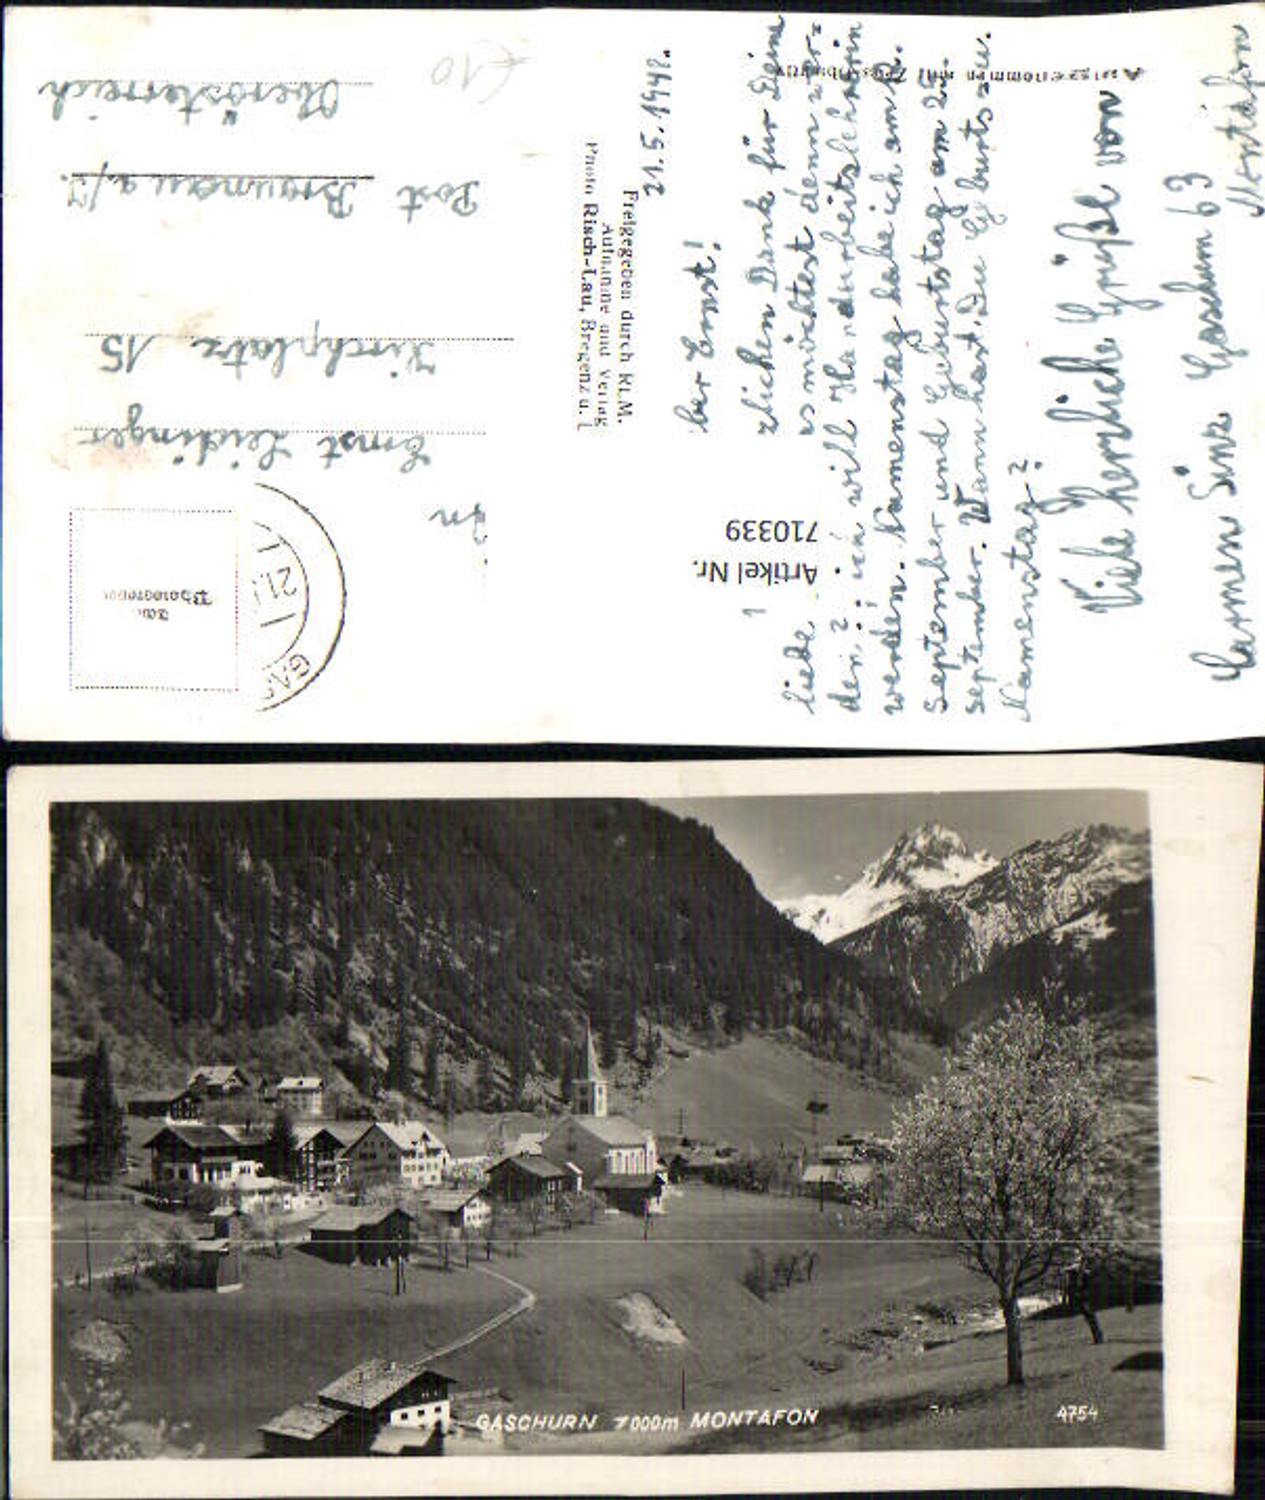 21.5.1942.
ber Ernst!
zlichen Dank für Deine
liebe
es möchtest denn wer-
den? ich will Handarbeitslehrerin
werden. Namenstag habe ich am 12.
September und Geburtstag am 25.
September. Wann hast Du Geburtstag u.
Namenstag?
Viele herzliche Grüße von
Carmen
Gaschurn 63
Montafon
Freigegeben durch RLM.
Aufnahme und Verlag
Photo Risch-Lau, Bregenz u.
Artikel Nr.
710339
An
Ernst Leidinger
Kirchplatz 15
Post Braunau a/J.
Oberösterreich
€10
21.
GAS
GASCHURN 1000m MONTAFON
4754